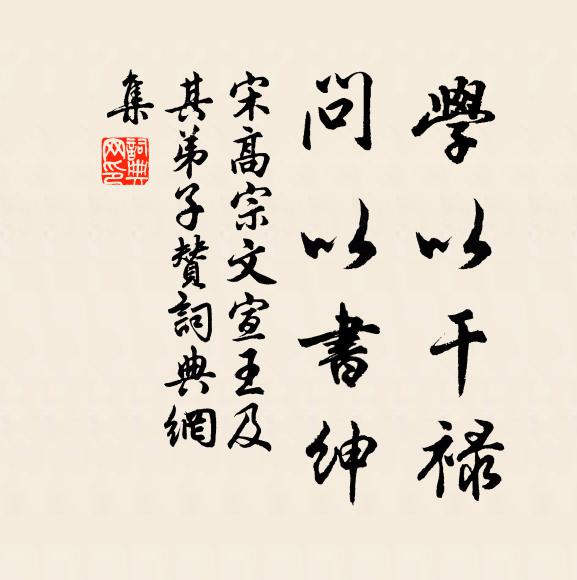 學以干祿
問以書紳
宋高宗文宣王及
其弟子贊詞典網
集
詞典
网印